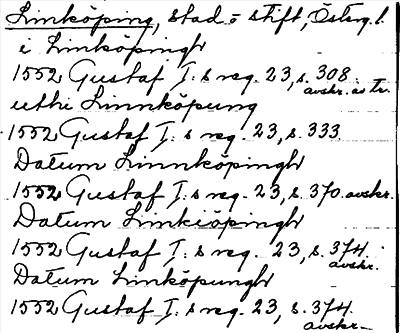 Linköping, stad o stift, Österg. l.
i Linköpingh
1552 Gustaf I:s reg. 23, s. 308
avskr. av tr.
uthi Linnköpung
1552 Gustaf I:s reg. 23, s. 333
Datum Linnköpingh
1552 Gustaf I:s reg. 23, s. 370 avskr.
Datum Linkiöpingh
1552 Gustaf I:s reg. 23, s. 374
avskr.
Datum Linköpungh
1552 Gustaf I:s reg. 23, s. 374
avskr.